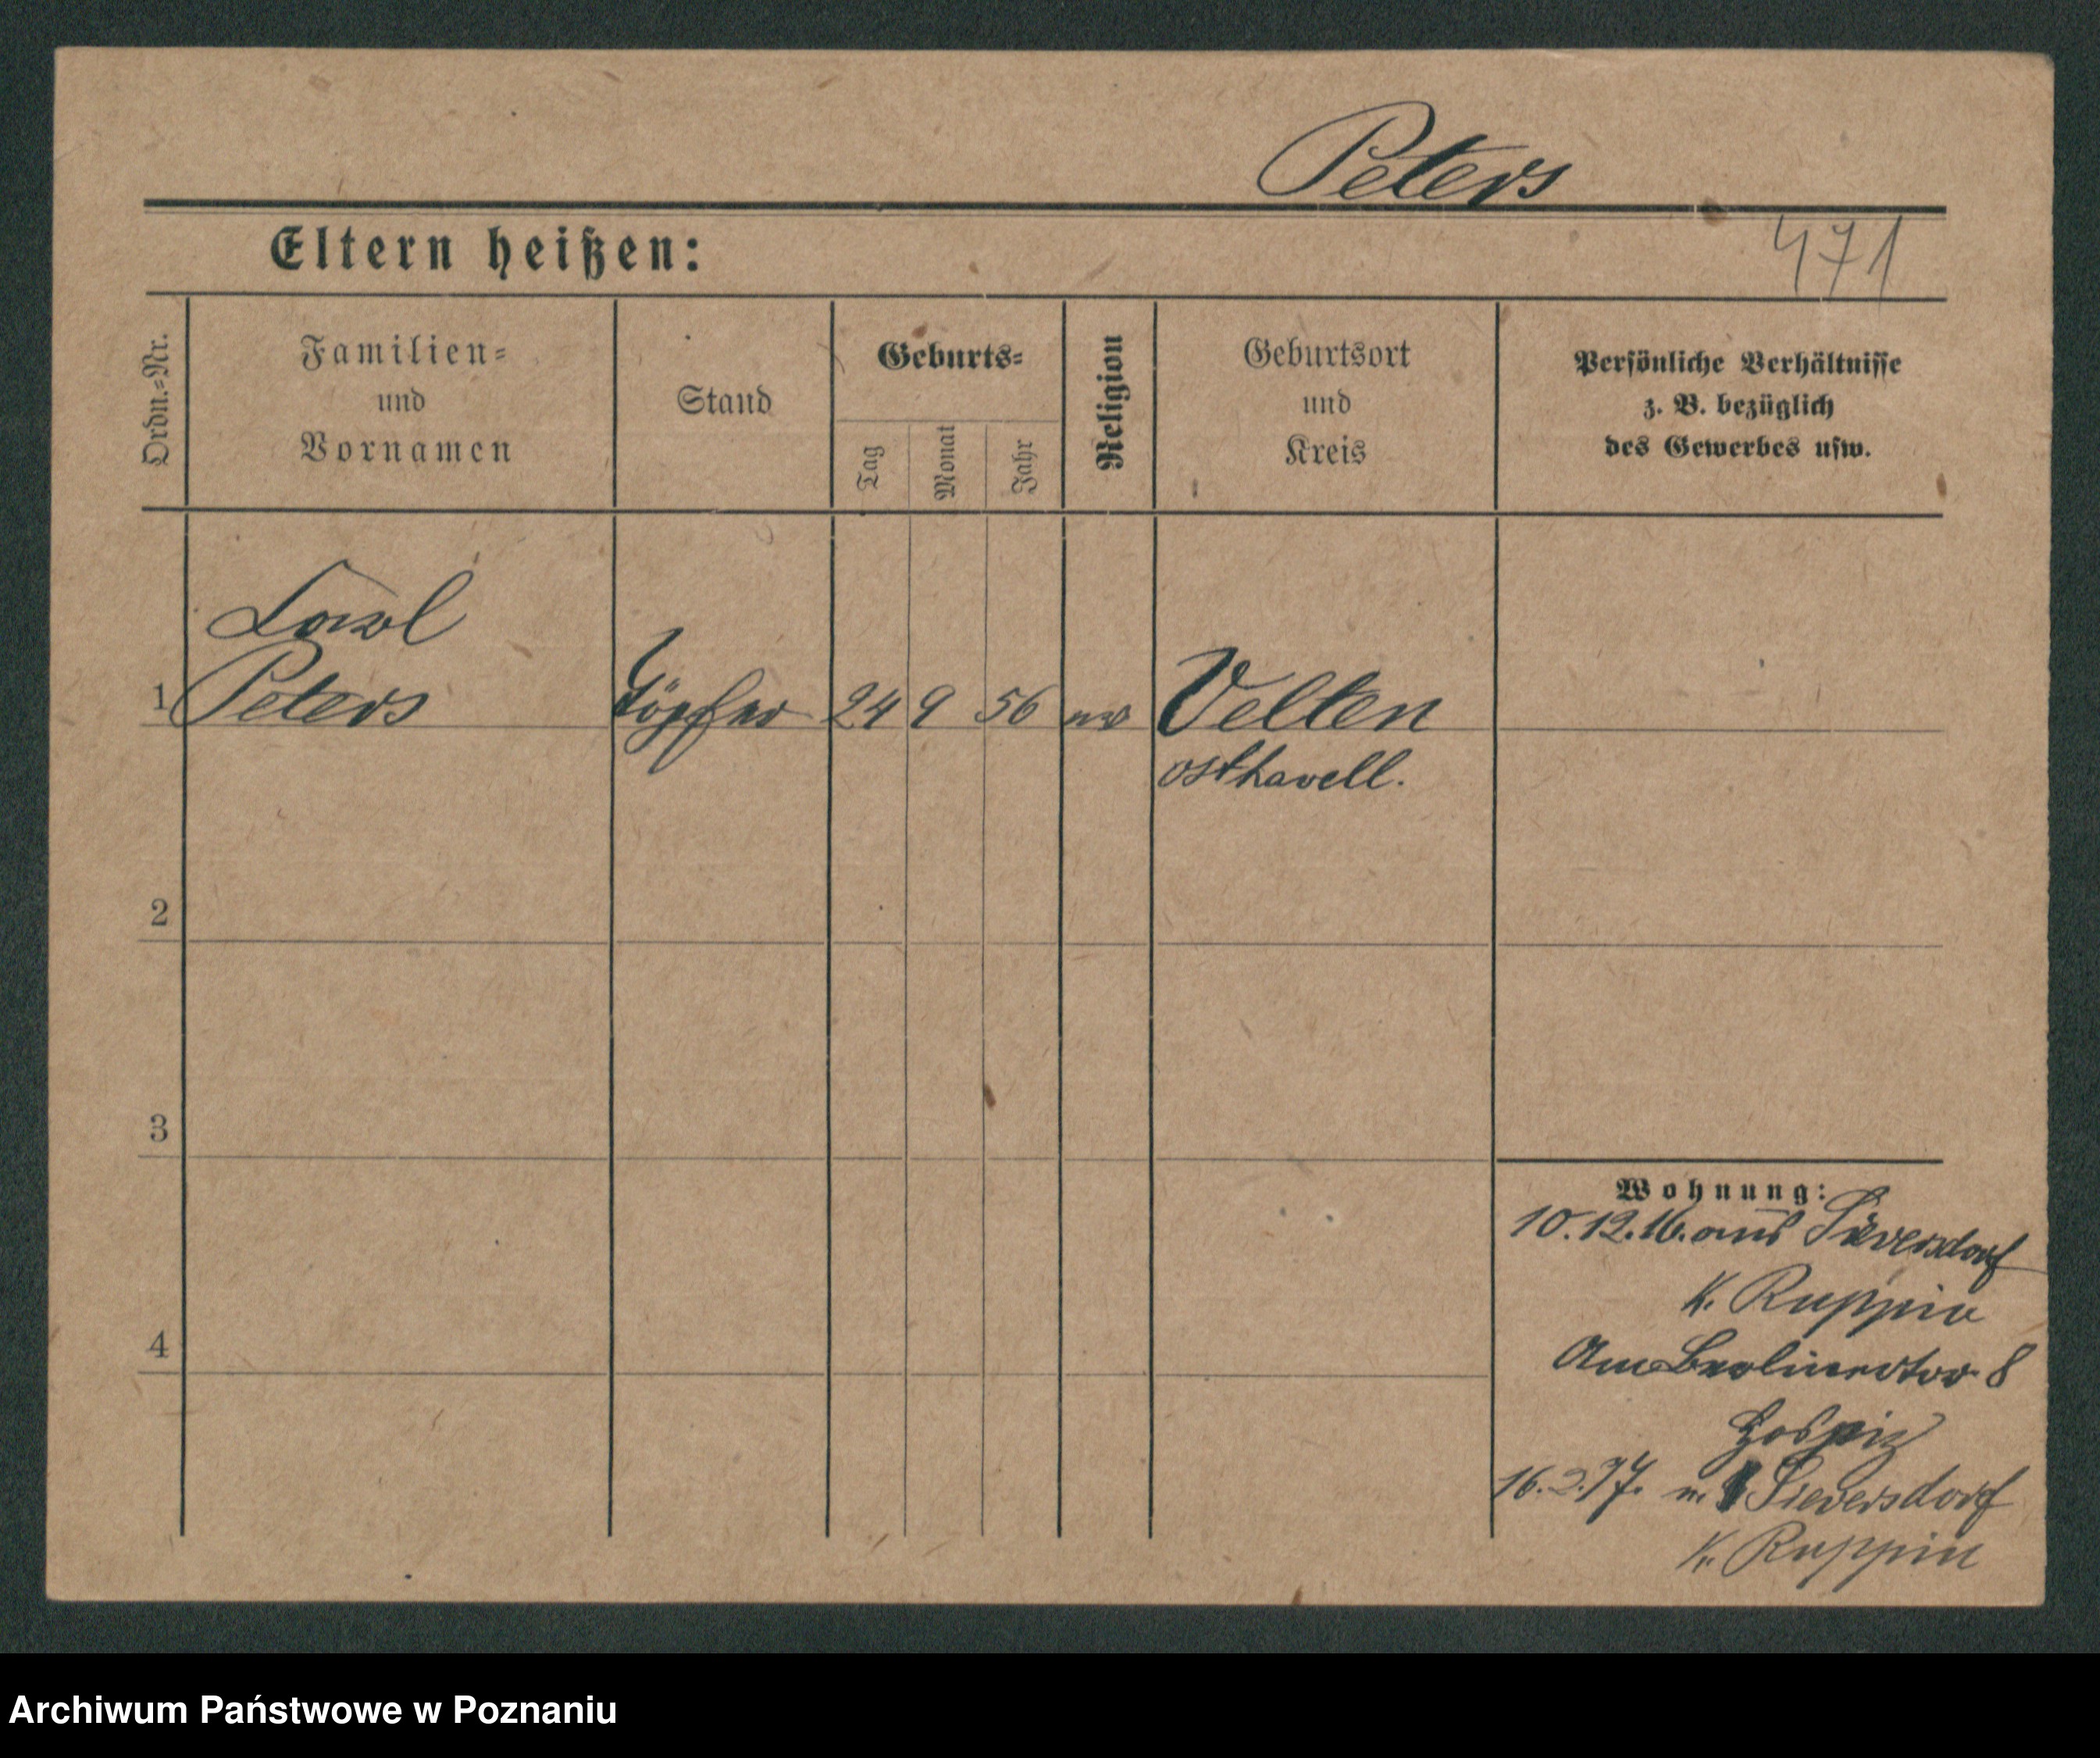 Peters
Eltern heißen:
471
Ordn.-Nr.
Familien-
und
Vornamen
Stand
Geburts-
Tag
Monat
Jahr
Religion
Geburtsort
und
Kreis
Persönliche Verhältnisse
z. B. bezüglich
des Gewerbes usw.
Karl
1 Peters Töpfer 24 9 56 ev Velten
Osthavell.
2
3
4
Wohnung:
10.12.16. aus Sieversdorf
K. Ruppin
Am Berlinertor 8
Hospiz
16.2.17. n. Sieversdorf
K. Ruppin
Archiwum Państwowe w Poznaniu